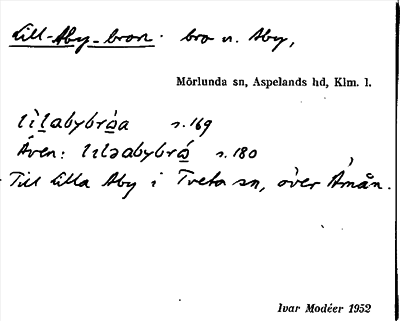 Lill-Aby-bron. bro n. Aby,
Mörlunda sn, Aspelands hd, Klm. l.
lìlabybróa s.169
Även: lıləabybró s.180
Till Lilla Aby i Tveta sn, över Åmån.
Ivar Modéer 1952